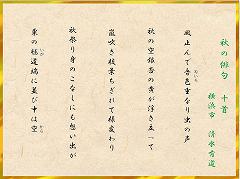 秋の俳句　十首
横浜市　清水有道
風止んで音色重なり虫の声
秋の空銀杏の黄が浮き立って
嵐吹き枝葉ちぎれて様変わり
秋祭り身のこなしにも思い出が
栗の毬道端に並び中は空